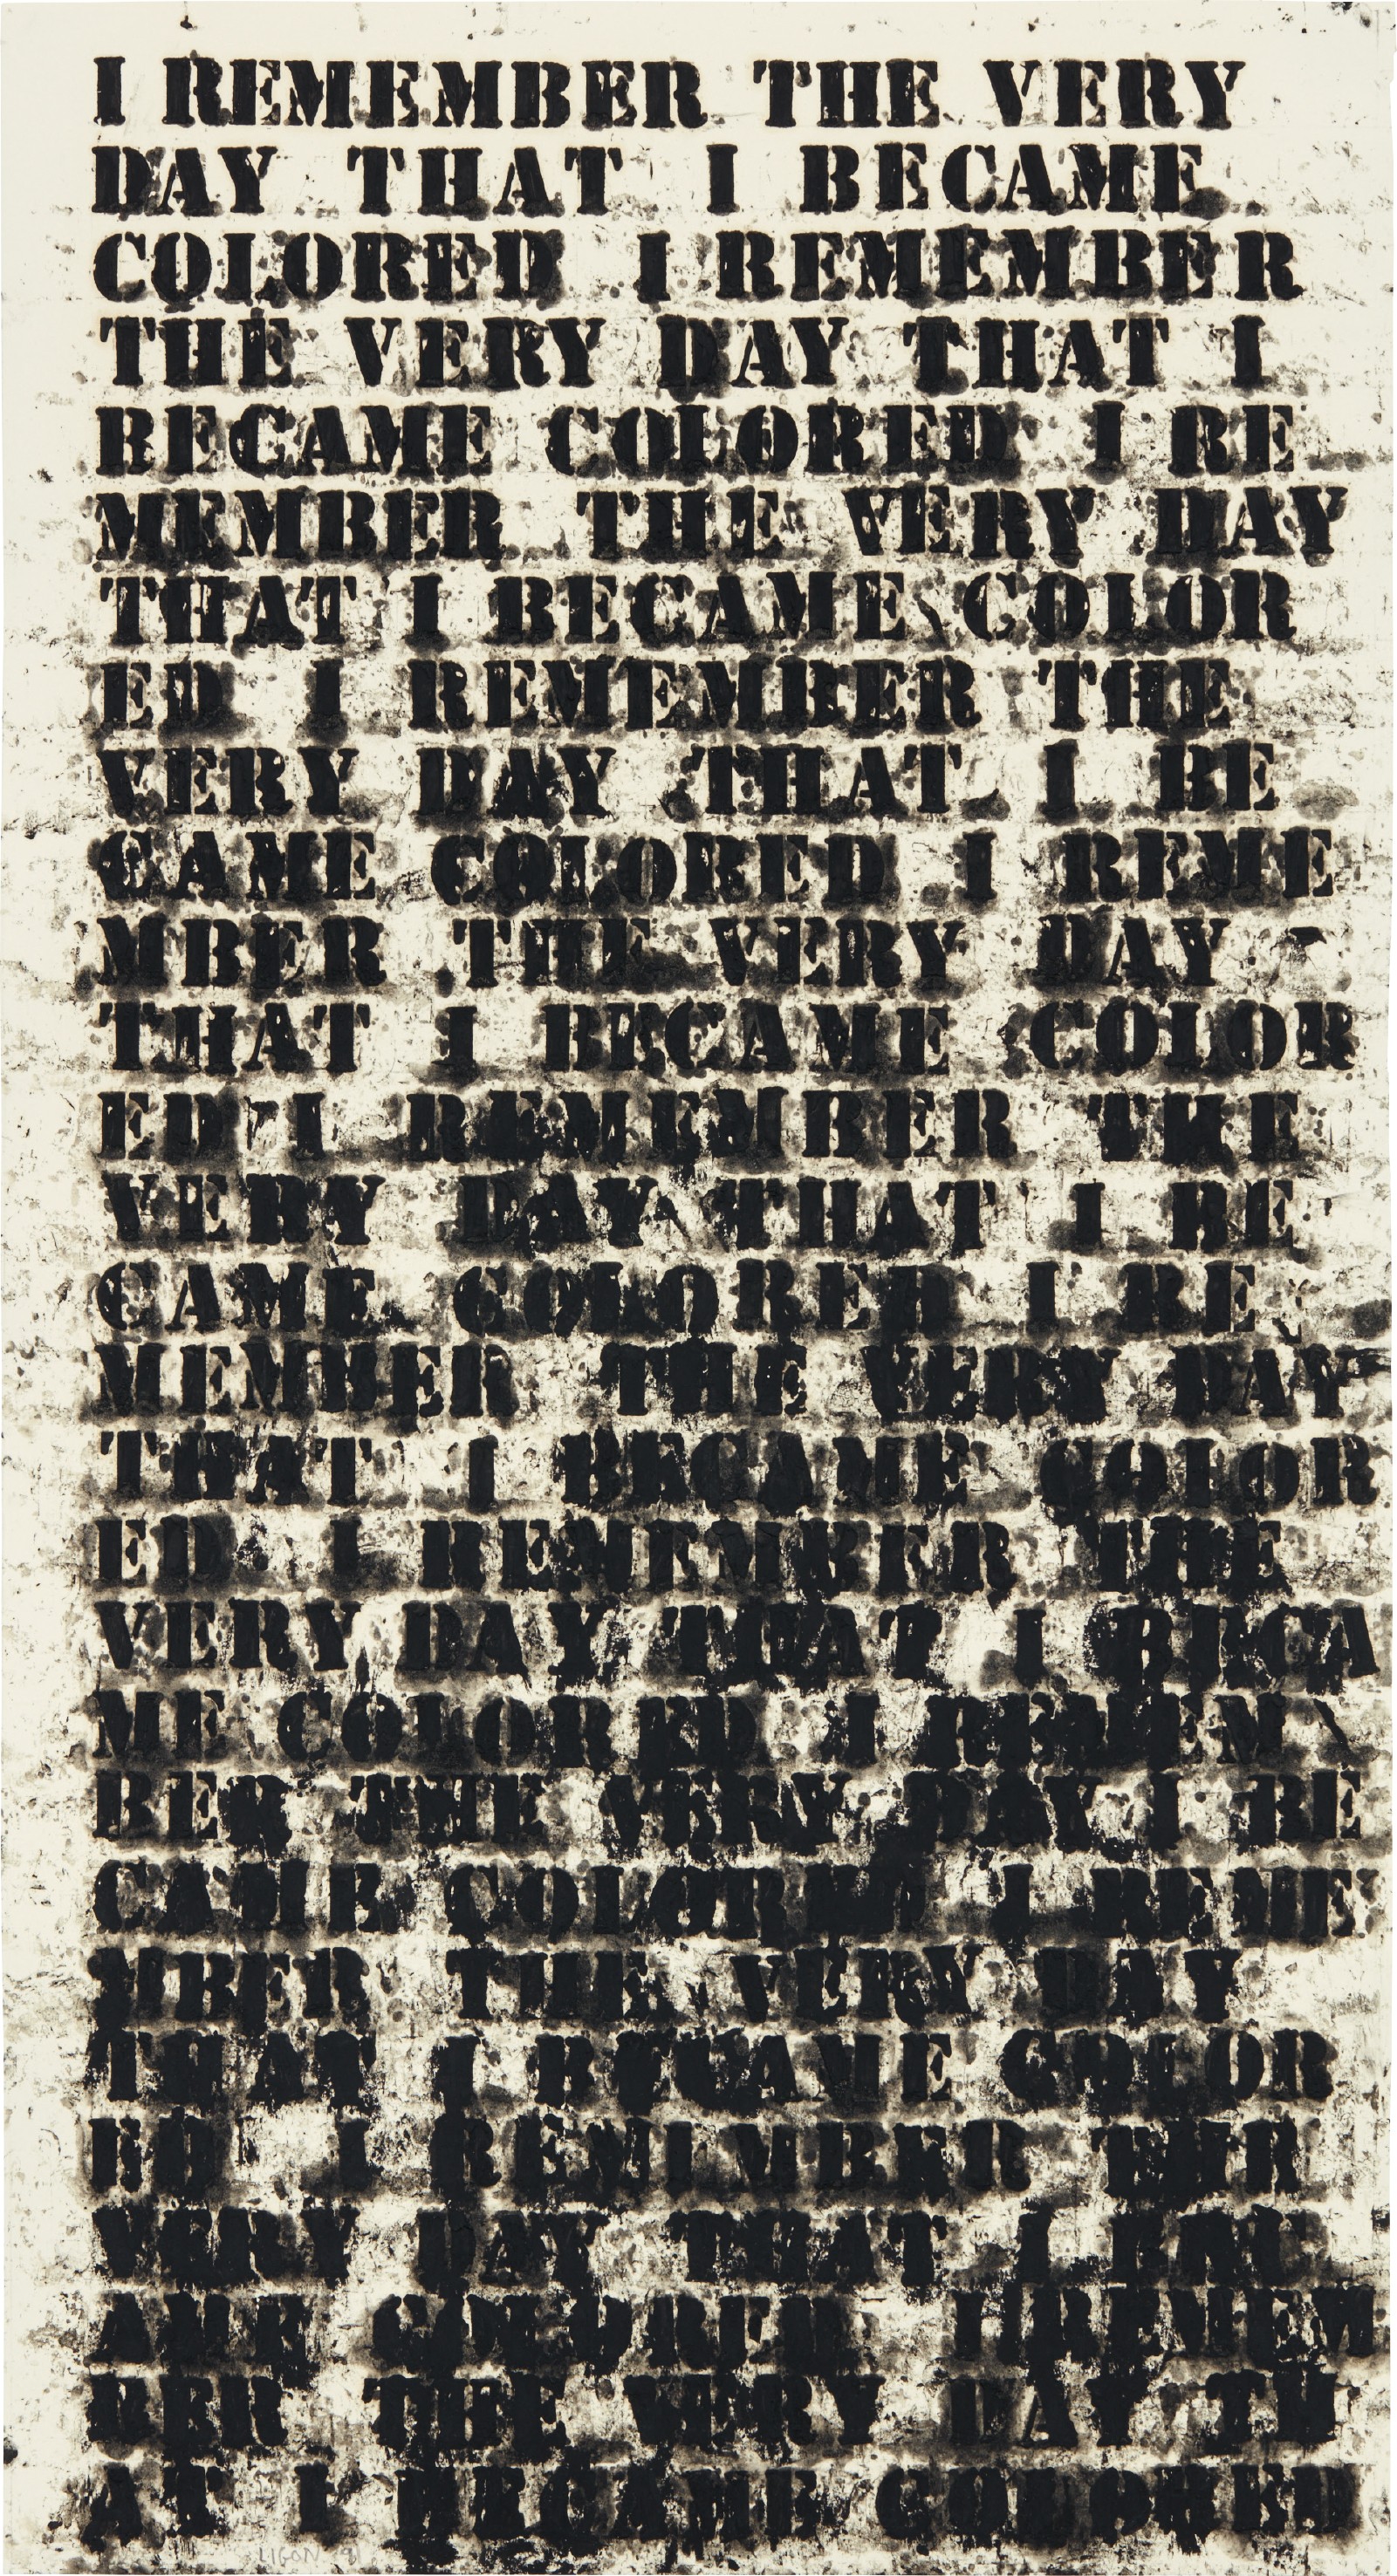 I REMEMBER THE VERY
DAY THAT I BECAME
COLORED I REMEMBER
THE VERY DAY THAT I
BECAME COLORED I RE
MEMBER THE VERY DAY
THAT I BECAME COLOR
ED I REMEMBER THE
VERY DAY THAT I BE
CAME COLORED I REME
MBER THE VERY DAY
THAT I BECAME COLOR
ED I REMEMBER THE
VERY DAY THAT I BE
CAME COLORED I RE
MEMBER THE VERY DAY
THAT I BECAME COLOR
ED I REMEMBER THE
VERY DAY THAT I BECA
ME COLORED I REMEM
BER THE VERY DAY I BE
CAME COLORED I REME
MBER THE VERY DAY
THAT I BECAME COLOR
ED I REMEMBER THE
VERY DAY THAT I BEC
AME COLORED I REMEM
BER THE VERY DAY TH
AT I BECAME COLORED
LIGON '91